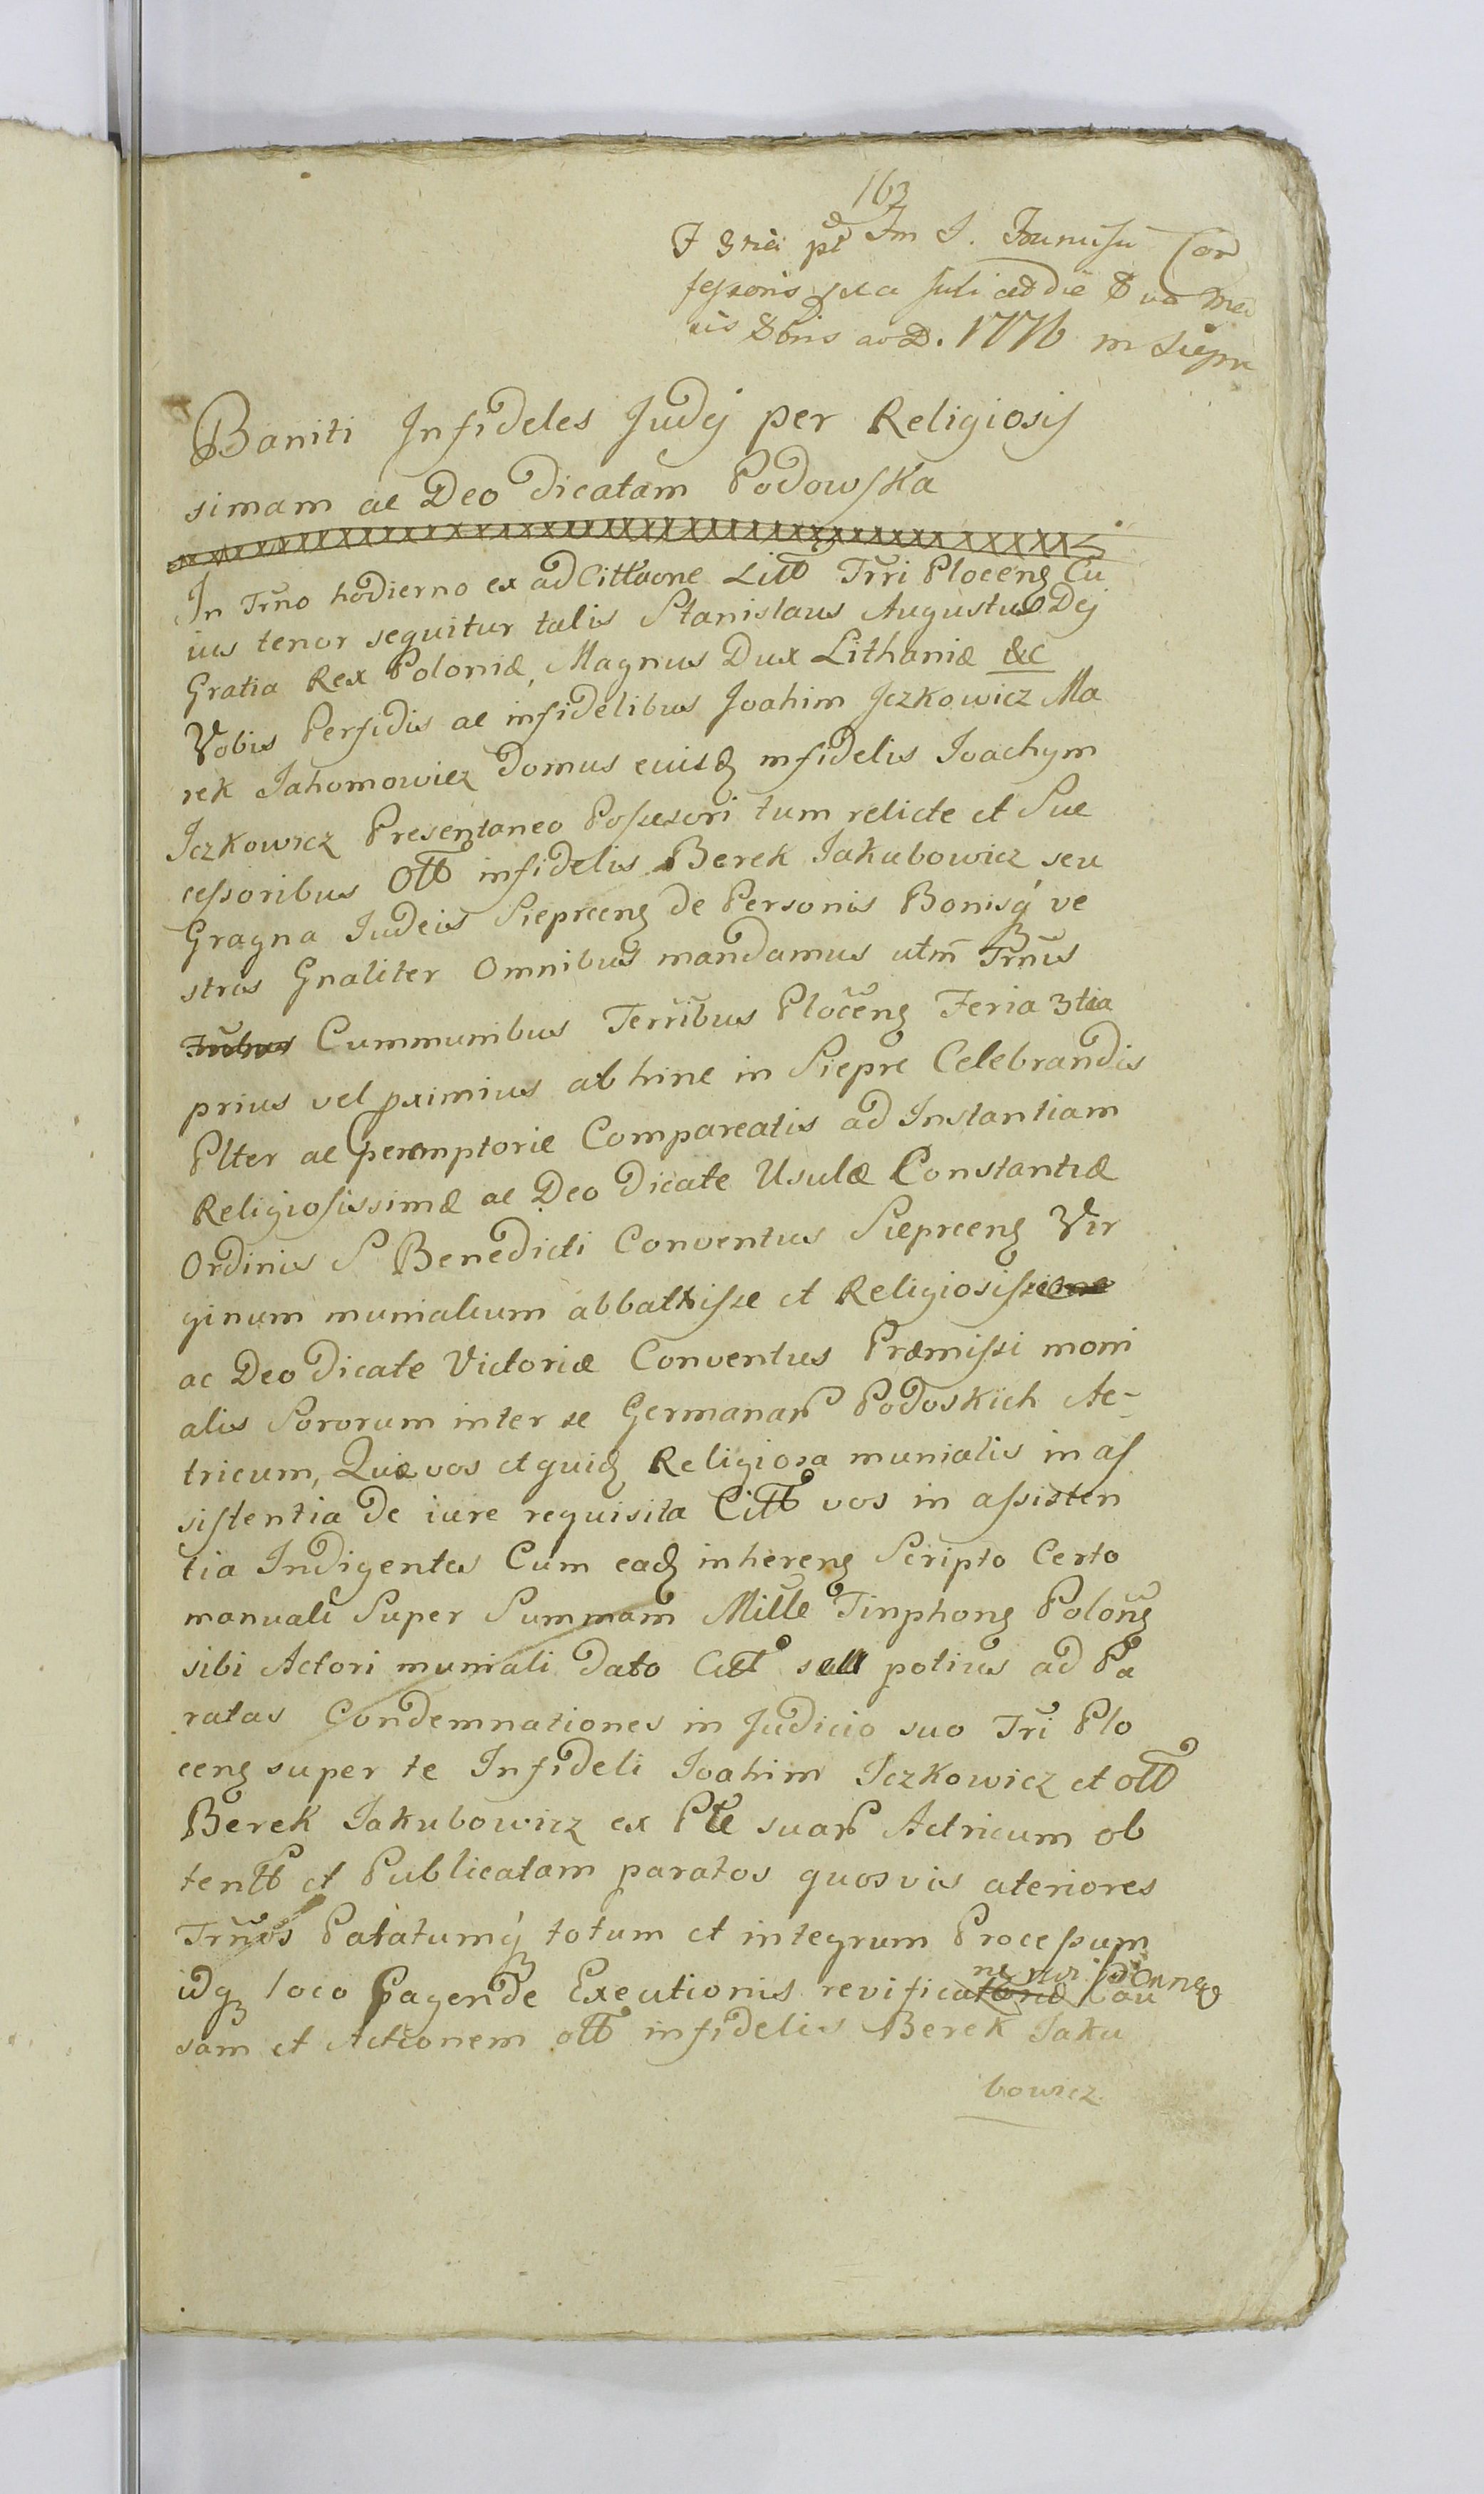 163
F 3tia pt Fm S. Con
fessoris juli ad die 8va Men
sis 8bris ao D. 1776 in Siepr
Baniti Infideles Judej per Religiosis
simam ac Deo dicatam Podowska
In Trno hodierno ex ad Cittaone Littt Trri Ploceng Cu
ius tenor sequitur talis Stanislaus Augustus Dej
Gratia Rex Poloniæ, Magnus Dux Lithaniæ &c
Vobis Perfidis ac infidelibus Joahim Jczkowicz Ma
rek Jahomowicz domus euisdq infidelis Joachym
Jczkowicz Presentaneo Possesori tum relicte et Suc
cessoribus Ottt infidelis Berek Jakubowicz seu
Gragna Judeis Siepreceng de Personis Bonisq ve
stris Gnaliter Omnibus mandamus utm Trnis
Cummunibus Terribus Ploceng Feria 3tia
prius vel pximius ab hinc in Siepre Celebrandis
Plter ac peremptorie Compareatis ad Instantiam
Religiosissimæ ac Deo dicate Usulæ Constantiæ
Ordinis S Benedicti Conventus Siepreceng Vir
ginum munialium abbattisse et Religiosissime
ac Deo dicate Victoriæ Conventus Præmissi moni
alis Sororum inter se Germanar Podoskich Ac-
tricum, Quæ vos et quidq Religiosa munialis in as
sistentia de iure requisita Cittt vos in assisten
tia Indigentes Cum eadq inhereng Scripto Certo
manuali Super Summam Mille Tinphong Polong
sibi Actori muniali dato Citt seu potius ad Pa
ratas Condemnationes in Judicio suo Tri Plo
ceng super te Infideli Joahim Jczkowicz et ottt
Berek Jakubowicz ex Pte suar Actricum ob
tenttt et Publicatam paratos quosvis ateriores
Trnos Patatumq totum et integrum Processum
idq loco Pagende Exeutionis revificatione Cau
sam et Actionem ottt infidelis Berek Jaku
bowicz